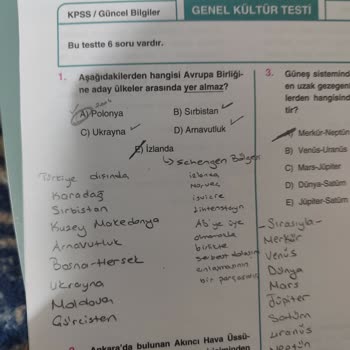 KPSS / Güncel Bilgiler
GENEL KÜLTÜR TESTİ
Bu testte 6 soru vardır.
1. Aşağıdakilerden hangisi Avrupa Birliği-
ne aday ülkeler arasında yer almaz?
A) Polonya
B) Sırbistan
C) Ukrayna
D) Arnavutluk
E) İzlanda
Schengen Bölgesi
Türkiye dışında
Karadağ
Sırbistan
Kuzey Makedonya
Arnavutluk
Bosna-Hersek
Ukrayna
Moldova
Gürcistan
izlanda
Norveç
isviçre
Lihtenştayn
AB'ye üye
olmamakla
birlikte
serbest dolaşım
anlaşmasının
bir parçasıdır
3. Güneş sisteminde
en uzak gezegen
lerden hangisind
tir?
A) Merkür-Neptün
B) Venüs-Uranüs
C) Mars-Jüpiter
D) Dünya-Satürn
E) Jüpiter-Satürn
-Sırasıyla-
Merkür
Venüs
Dünya
Mars
Jüpiter
Satürn
Uranüs
Neptün
Ankara'da bulunan Akıncı Hava Üssü-